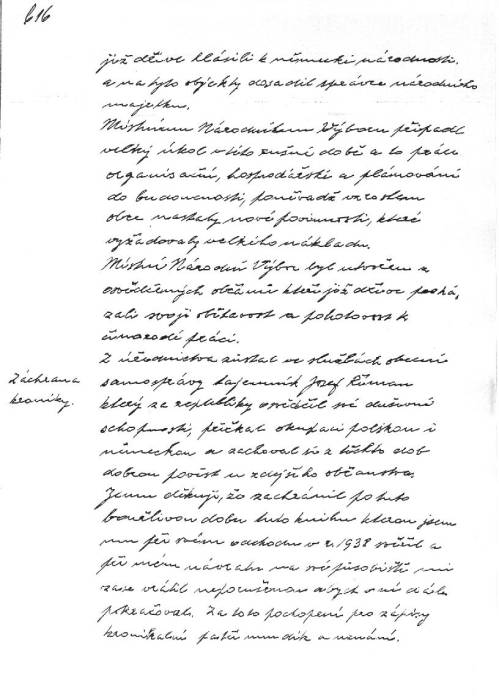 616
již dříve hlásili k německé národnosti.
a na tyto objekty dosadil správce národního
majetku.
Místnímu Národnímu Výboru připadl
velký úkol v této rušné době a to práce
organisační, hospodářské a plánování
do budoucnosti, poněvadž vzrostem
obce nastaly nové povinnosti, které
vyžadovaly velkého nákladu.
Místní Národní Výbor byl utvořen z
osvědčených občanů kteří již dříve proká,
zali svoji obětavost a pohotovost k
činorodé práci.
Z úřednictva zůstal ve službách obecní
Záchrana
kroniky.
samosprávy tajemník Josef Růman
který za republiky osvědčil své duševní
schopnosti, přečkal okupaci polskou i
německou a zachoval si z těchto dob
dobrou pověst u zdejšího občanstva.
Jemu děkuji, že zachránil po tuto
bouřlivou dobu tuto knihu kterou jsem
mu při svém odchodu v r. 1938 svěřil a
při mém návratu na své působiště mi
zase vrátil neporušenou abych v ní dále
pokračoval. Za toto pochopení pro zápisy
kronikální patří mu dík a uznání.